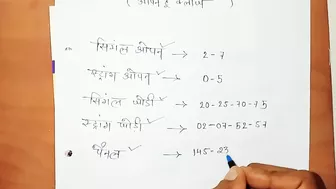 ( ओपन टू क्लोज )
सिंगल ओपन ✓ → 2-7
स्ट्रांग ओपन ✓ → 0-5
सिंगल जोडी ✓ → 20-25-70-75
स्ट्रांग जोडी ✓ → 02-07-52-57
पैनल ✓ → 145-23